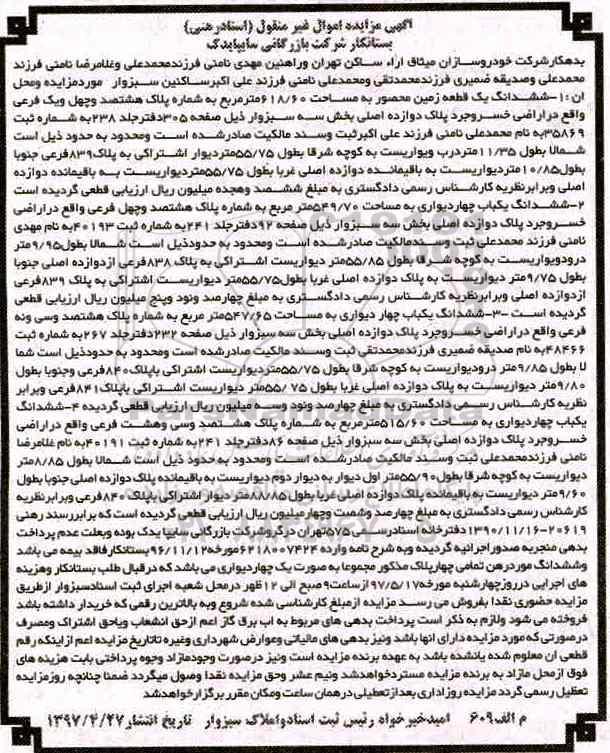 آگهی مزایده اموال غیر منقول (اسنادرهنی)
بستانکار شرکت بازرگانی سایپایدک
بدهکارشرکت خودروسازان میثاق اراء ساکن تهران وراهنین مهدی نامنی فرزندمحمدعلی وغلامرضا نامنی فرزند
محمدعلی وصدیقه ضمیری فرزندمحمدتقی ومحمدعلی نامنی فرزند علی اکبرساکنین سبزوار موردمزایده ومحل
ان :۱-ششدانگ یک قطعه زمین محصور به مساحت ۶۱۸/۶۰مترمربع به شماره پلاک هشتصد وچهل ویک فرعی
واقع دراراضی خسروجرد پلاک دوازده اصلی بخش سه سبزوار ذیل صفحه ۳۰۵دفترجلد ۲۳۸به شماره ثبت
۳۵۸۶۹به نام محمدعلی نامنی فرزند علی اکبرثبت وسند مالکیت صادرشده است ومحدود به حدود ذیل است
شمالا بطول ۱۱/۳۵متردرب ودیواریست به کوچه شرقا بطول ۵۵/۷۵متردیوار اشتراکی به پلاک۸۳۹فرعی جنوبا
بطول۱۰/۸۵متردیواریست به باقیمانده دوازده اصلی غربا بطول ۵۵/۷۵متردیواریست به باقیمانده دوازده
اصلی وبرابرنظریه کارشناس رسمی دادگستری به مبلغ ششصد وهجده میلیون ریال ارزیابی قطعی گردیده است
۲-ششدانگ یکباب چهاردیواری به مساحت ۵۴۹/۷۰متر مربع به شماره پلاک هشتصد وچهل فرعی واقع دراراضی
خسروجرد پلاک دوازده اصلی بخش سه سبزوار ذیل صفحه ۹۲دفترجلد ۲۴۱به شماره ثبت ۴۰۱۹۳به نام مهدی
نامنی فرزند محمدعلی ثبت وسندمالکیت صادرشده است ومحدود به حدودذیل است شمالا بطول۹/۹۵متر
درودیواریست به کوچه شرقا بطول ۵۵/۸۵متر دیواریست اشتراکی به پلاک ۸۳۸فرعی ازدوازده اصلی جنوبا
بطول ۹/۷۵متر دیواریست به پلاک دوازده اصلی غربا بطول۵۵/۷۵متر دیواریست اشتراکی به پلاک ۸۳۹فرعی
ازدوازده اصلی وبرابرنظریه کارشناس رسمی دادگستری به مبلغ چهارصد ونود وپنج میلیون ریال ارزیابی قطعی
گردیده است -۳-ششدانگ یکباب چهار دیواری به مساحت ۵۴۷/۶۵متر مربع به شماره پلاک هشتصد وسی ونه
فرعی واقع دراراضی خسروجرد پلاک دوازده اصلی بخش سه سبزوار ذیل صفحه ۲۳۲دفترجلد ۲۶۷به شماره ثبت
۴۸۴۶۶به نام صدیقه ضمیری فرزندمحمدتقی ثبت وسند مالکیت صادرشده است ومحدود به حدودذیل است شما
لا بطول ۹/۸۵متر درودیواریست به کوچه شرقا بطول ۵۵/۷۵متردیواریست اشتراکی باپلاک۸۴۰فرعی وجنوبا بطول
۹/۸۰متر دیواریست به پلاک دوازده اصلی غربا بطول ۵۵/۷۵متر دیواریست اشتراکی باپلاک۸۴۱فرعی وبرابر
نظریه کارشناس رسمی دادگستری به مبلغ چهارصد ونود وسه میلیون ریال ارزیابی قطعی گردیده ۴-ششدانگ
یکباب چهاردیواری به مساحت ۵۱۵/۶۰مترمربع به شماره پلاک هشتصد وسی وهشت فرعی واقع دراراضی
خسروجرد پلاک دوازده اصلی بخش سه سبزوار ذیل صفحه ۸۶دفترجلد ۲۴۱به شماره ثبت ۴۰۱۹۱به نام غلامرضا
نامنی فرزندمحمدعلی ثبت وسند مالکیت صادرشده است ومحدود به حدود ذیل است شمالا بطول ۸/۸۵متر
دیواریست به کوچه شرقا بطول۵۵/۹۰متر اول دیوار به دیوار دوم دیواریست به باقیمانده پلاک دوازده اصلی جنوبا بطول
۹/۶۰متر دیواریست به باقیمانده پلاک دوازده اصلی غربا بطول ۸۸/۸۵متر دیوار اشتراکی باپلاک ۸۴۰فرعی وبرابرنظریه
کارشناس رسمی دادگستری به مبلغ چهارصد وشصت وچهارمیلیون ریال ارزیابی قطعی گردیده است که برابرسند رهنی
۲۰۶۱۹-۱۳۹۰/۱۱/۱۶دفترخانه اسنادرسمی ۵۷۵تهران درگروشرکت بازرگانی سایپا یدک بوده وبعلت عدم پرداخت
بدهی منجربه صدوراجرائیه گردیده وبه شرح نامه وارده ۶۲۱۸۰۰۷۴۲۴مورخه۹۶/۱۱/۱۲بستانکارفاقد بیمه می باشد
وششدانگ موردرهن تمامی چهارپلاک مذکور مجموعا به صورت یک چهاردیواری می باشد که درقبال طلب بستانکار وهزینه
های اجرایی درروزچهارشنبه مورخه۹۷/۵/۱۷ازساعت۹صبح الی ۱۲ظهر درمحل شعبه اجرای ثبت اسنادسبزوار ازطریق
مزایده حضوری نقدا بفروش می رسد مزایده ازمبلغ کارشناسی شده شروع وبه بالاترین رقمی که خریدار داشته باشد
فروخته می شود ولازم به ذکر است پرداخت بدهی های مربوط به اب برق گاز اعم ازحق انشعاب ویاحق اشتراک ومصرف
درصورتی که مورد مزایده دارای انها باشد ونیز بدهی های مالیاتی وعوارض شهرداری وغیره تاتاریخ مزایده اعم ازاینکه رقم
قطعی ان معلوم شده یانشده باشد به عهده برنده مزایده است ونیز درصورت وجودمازاد وجوه پرداختی بابت هزینه های
فوق ازمحل مازاد به برنده مزایده مستردخواهدشد ونیم عشر وحق مزایده نقدا وصول میگردد ضمنا چنانچه روزمزایده
تعطیل رسمی گردد مزایده روزاداری بعدازتعطیلی درهمان ساعت ومکان مقرر برگزارخواهدشد
م الف۶۰۹ امیدخیرخواه رئیس ثبت اسنادواملاک سبزوار تاریخ انتشار۱۳۹۷/۴/۲۷